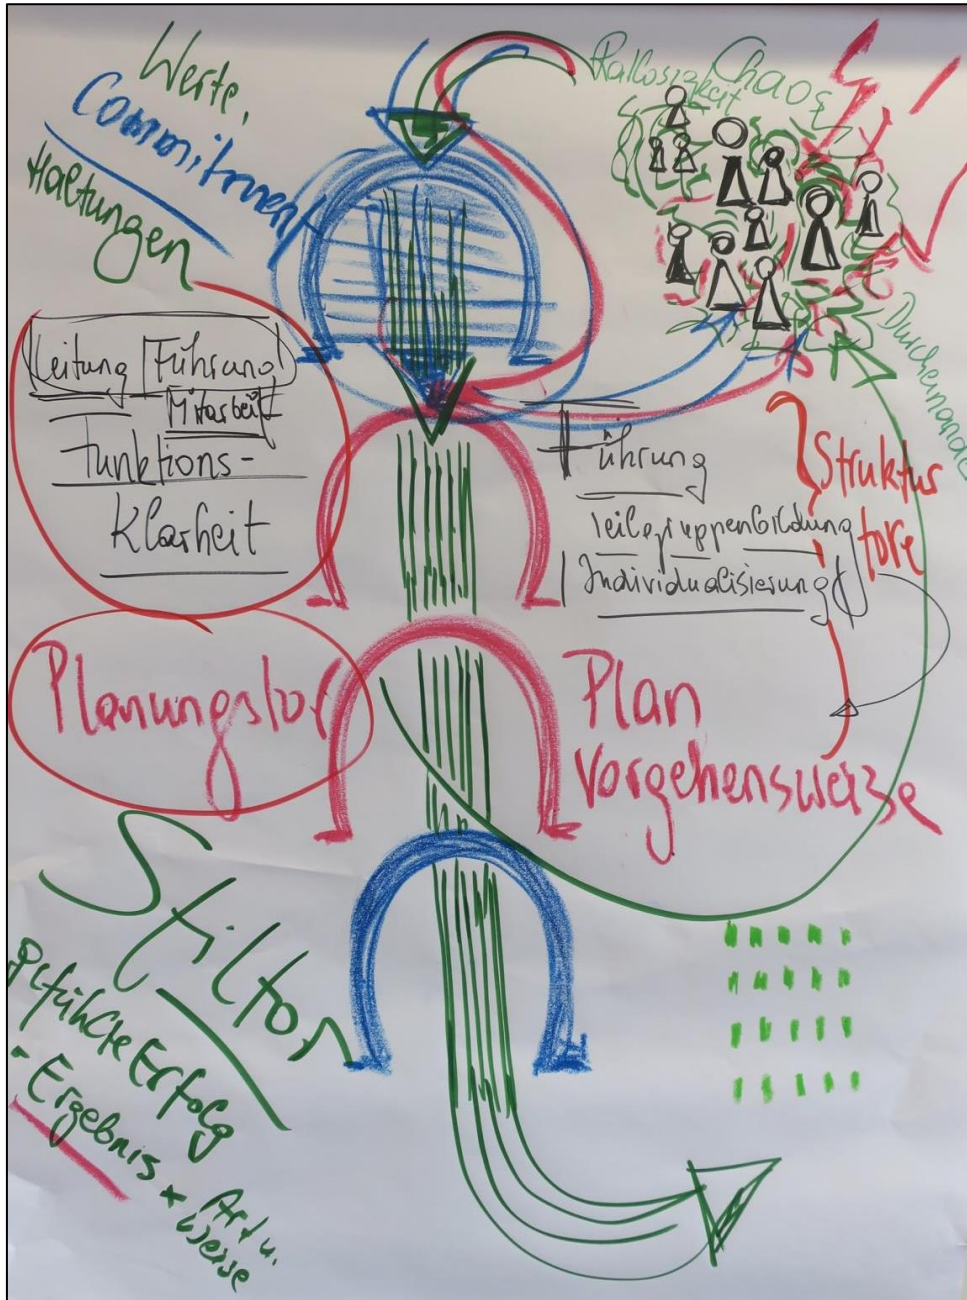 Werte,
Commitment
Haltungen
Ratlosigkeit
Chaos
Durcheinander
Leitung Führung
Mitarbeit
Funktions-
Klarheit
Führung
Teilgruppenbildung
Individualisierung
Struktur
tore
Planungstor
Plan
Vorgehensweise
Stiltor
gefühlte Erfolg
- Ergebnis
Art u.
Weise